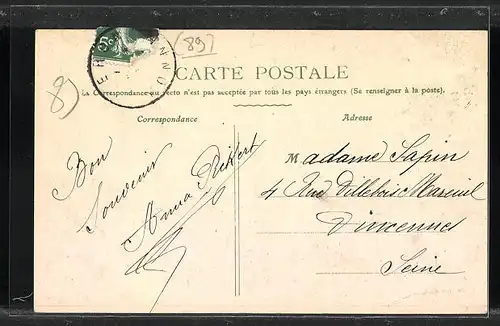 (89)
5c
CARTE POSTALE
La Correspondance au recto n'est pas acceptée par tous les pays étrangers (Se renseigner à la poste).
89
Correspondance
Bon
Souvenir
Anna
Adresse
Madame Sapin
4 Rue Villebois Mareuil
Vincennes
Seine